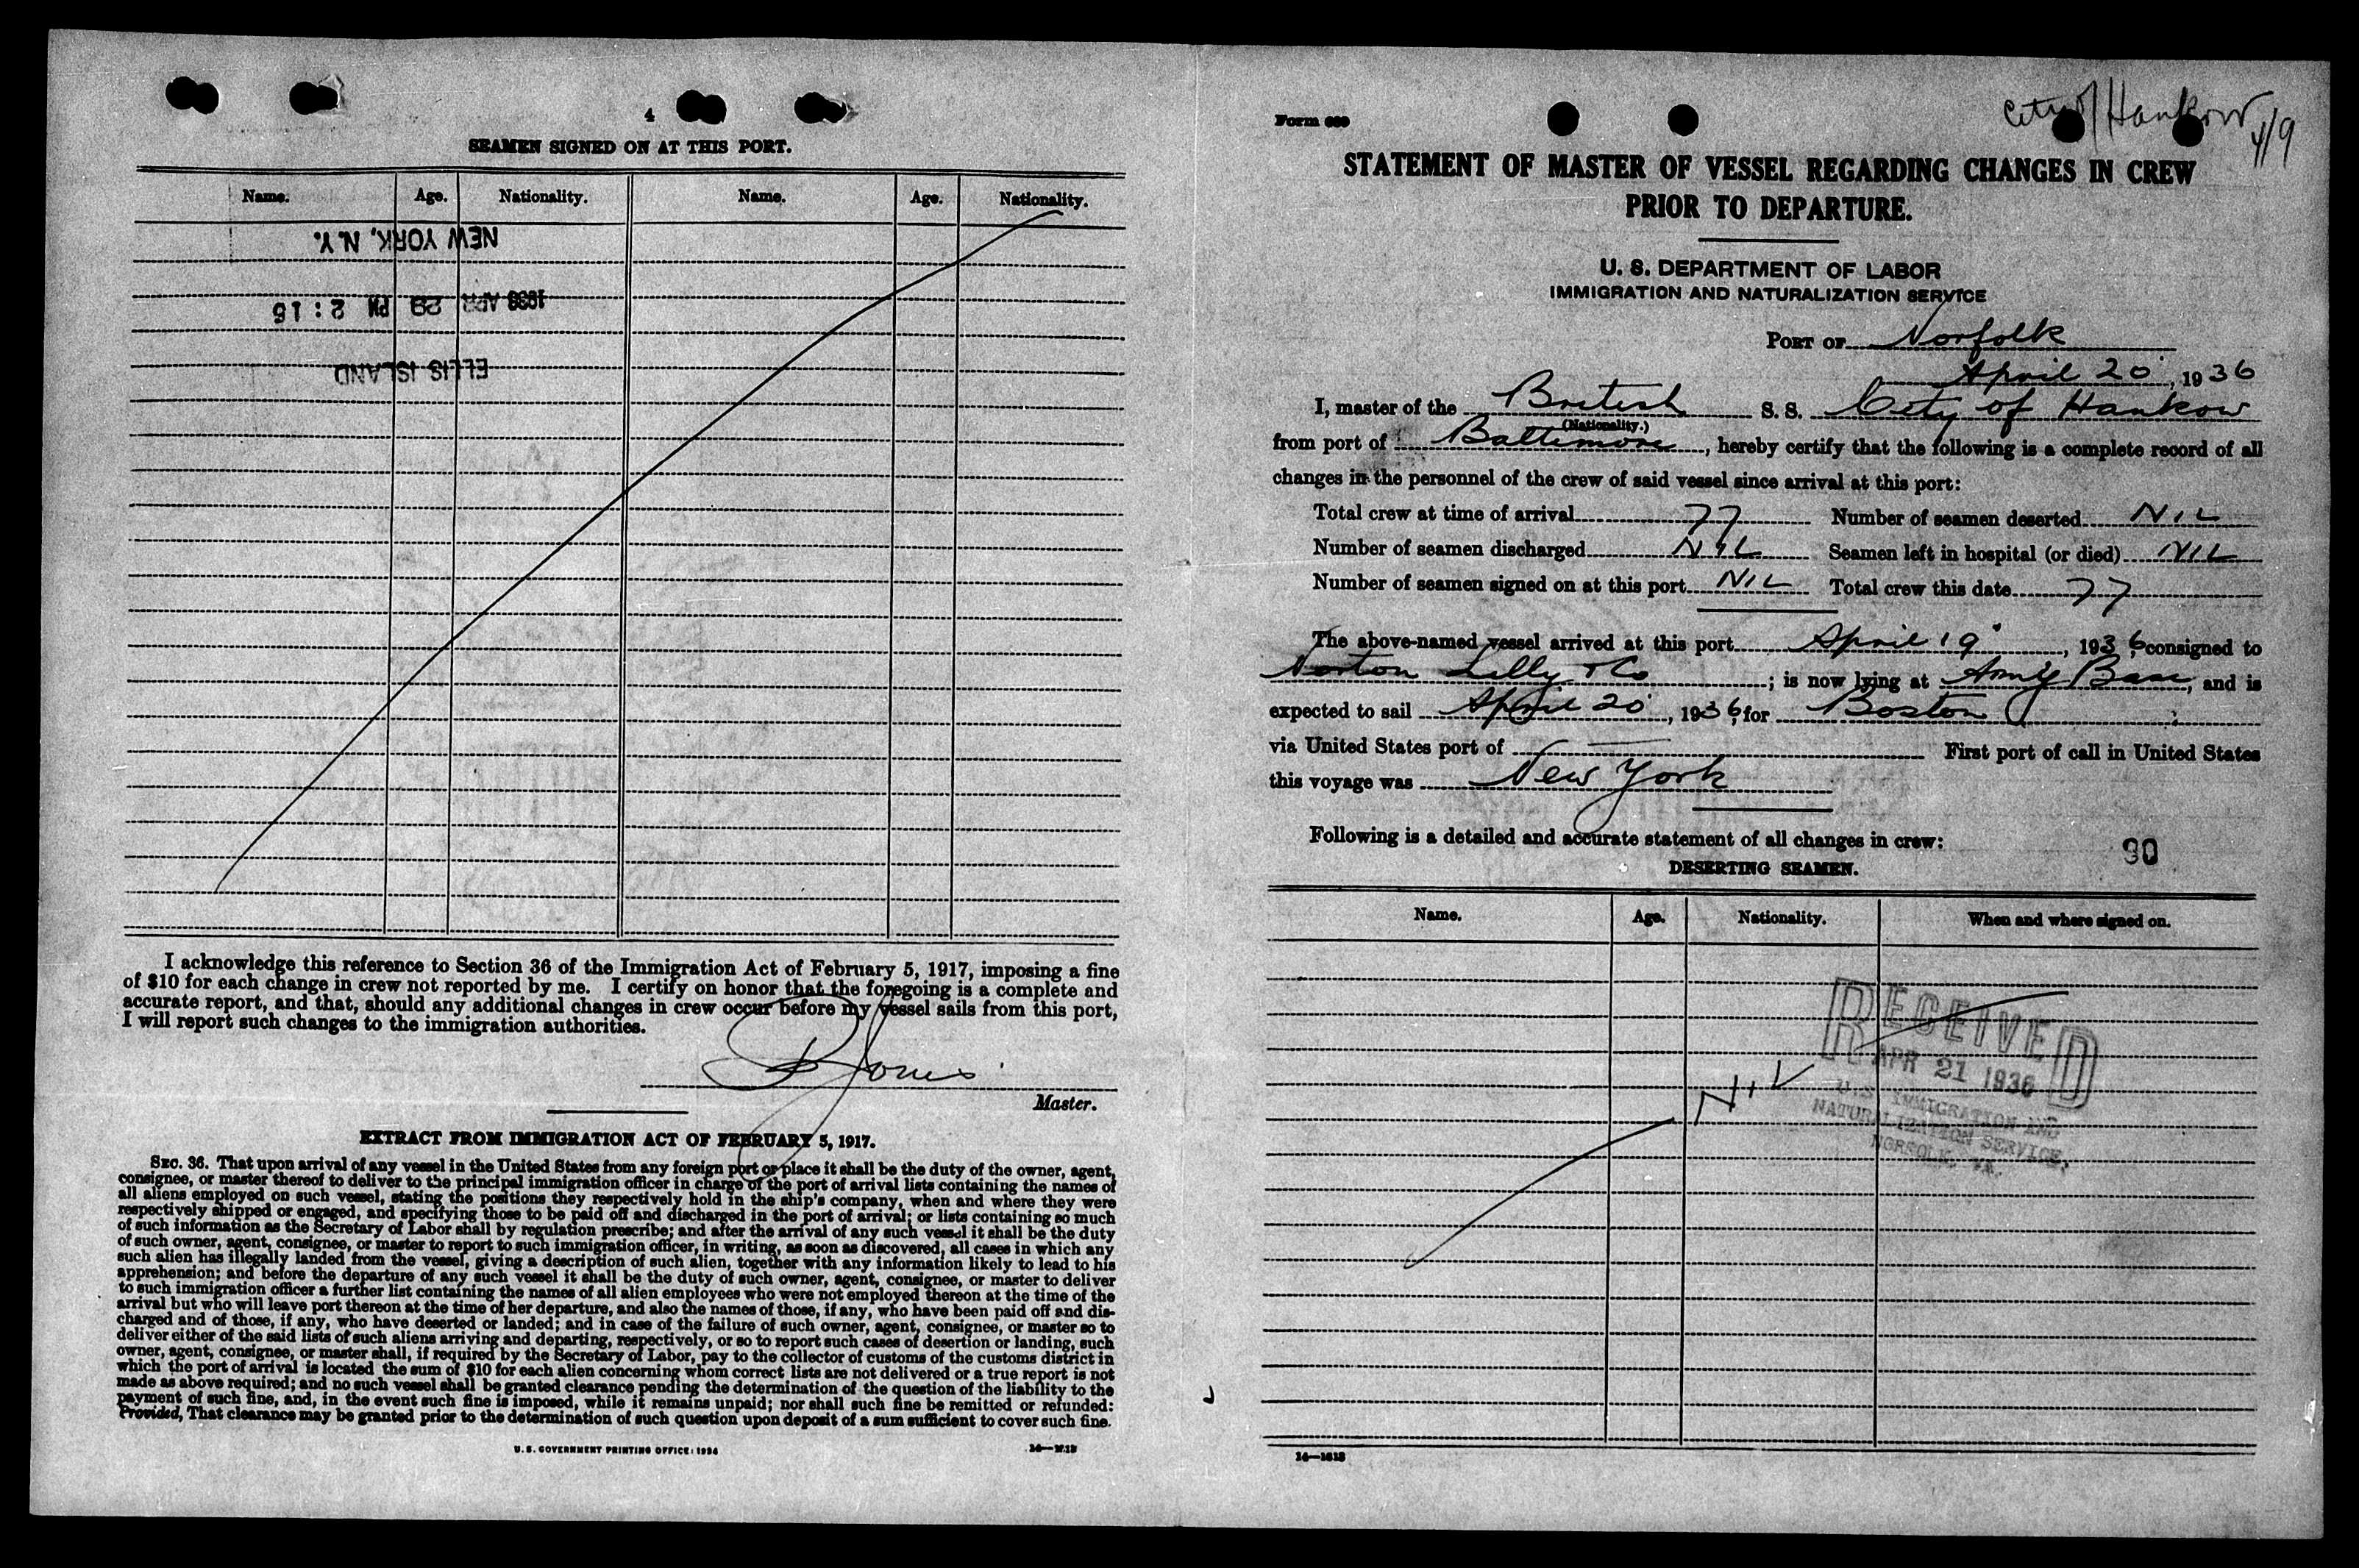 4
SEAMEN SIGNED ON AT THIS PORT.
Name. Age. Nationality. Name. Age. Nationality.
NEW YORK, N.Y.
1936 APR 29 PM 2:15
ELLIS ISLAND
I acknowledge this reference to Section 36 of the Immigration Act of February 5, 1917, imposing a fine
of $10 for each change in crew not reported by me. I certify on honor that the foregoing is a complete and
accurate report, and that, should any additional changes in crew occur before my vessel sails from this port,
I will report such changes to the immigration authorities.
Jones
Master.
EXTRACT FROM IMMIGRATION ACT OF FEBRUARY 5, 1917.
SEC. 36. That upon arrival of any vessel in the United States from any foreign port or place it shall be the duty of the owner, agent,
consignee, or master thereof to deliver to the principal immigration officer in charge of the port of arrival lists containing the names of
all aliens employed on such vessel, stating the positions they respectively hold in the ship's company, when and where they were
respectively shipped or engaged, and specifying those to be paid off and discharged in the port of arrival; or lists containing so much
of such information as the Secretary of Labor shall by regulation prescribe; and after the arrival of any such vessel it shall be the duty
of such owner, agent, consignee, or master to report to such immigration officer, in writing, as soon as discovered, all cases in which any
such alien has illegally landed from the vessel, giving a description of such alien, together with any information likely to lead to his
apprehension; and before the departure of any such vessel it shall be the duty of such owner, agent, consignee, or master to deliver
to such immigration officer a further list containing the names of all alien employees who were not employed thereon at the time of the
arrival but who will leave port thereon at the time of her departure, and also the names of those, if any, who have been paid off and dis-
charged and of those, if any, who have deserted or landed; and in case of the failure of such owner, agent, consignee, or master so to
deliver either of the said lists of such aliens arriving and departing, respectively, or so to report such cases of desertion or landing, such
owner, agent, consignee, or master shall, if required by the Secretary of Labor, pay to the collector of customs of the customs district in
which the port of arrival is located the sum of $10 for each alien concerning whom correct lists are not delivered or a true report is not
made as above required; and no such vessel shall be granted clearance pending the determination of the question of the liability to the
payment of such fine, and, in the event such fine is imposed, while it remains unpaid; nor shall such fine be remitted or refunded:
Provided, That clearance may be granted prior to the determination of such question upon deposit of a sum sufficient to cover such fine.
U. S. GOVERNMENT PRINTING OFFICE: 1934
City of Hankow 4/9
Form
STATEMENT OF MASTER OF VESSEL REGARDING CHANGES IN CREW
PRIOR TO DEPARTURE.
U. S. DEPARTMENT OF LABOR
IMMIGRATION AND NATURALIZATION SERVICE
PORT OF Norfolk
April 20, 1936
I, master of the British S. S. City of Hankow
(Nationality.)
from port of Baltimore, hereby certify that the following is a complete record of all
changes in the personnel of the crew of said vessel since arrival at this port:
Total crew at time of arrival 77 Number of seamen deserted NIL
Number of seamen discharged NIL Seamen left in hospital (or died) NIL
Number of seamen signed on at this port NIL Total crew this date 77
The above-named vessel arrived at this port April 19, 1936, consigned to
Norton Lilly & Co; is now lying at Army Base, and is
expected to sail April 20, 1936, for Boston;
via United States port of — First port of call in United States
this voyage was New York
Following is a detailed and accurate statement of all changes in crew:
90
DESERTING SEAMEN.
Name. Age. Nationality. When and where signed on.
RECEIVED
APR 21 1936
U.S. IMMIGRATION AND
NATURALIZATION SERVICE,
NORFOLK, VA.
NIL
14—1613